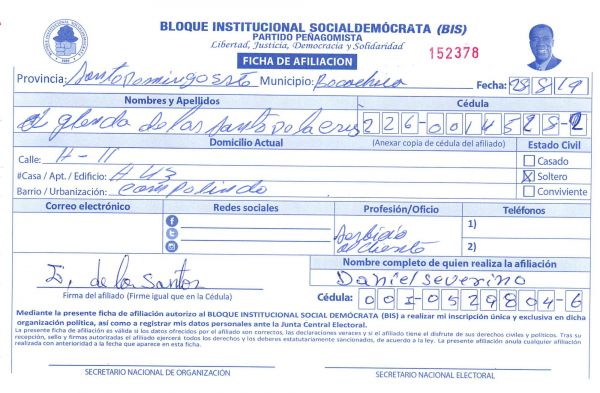 BLOQUE INSTITUCIONAL SOCIALDEMÓCRATA (BIS)
PARTIDO PEÑAGOMISTA
Libertad, Justicia, Democracia y Solidaridad
FICHA DE AFILIACION
152378
Provincia: Santo Domingo Municipio: Fecha: 28 8 19
Nombres y Apellidos Cédula
glenda de los santos de la cruz 226-0014528-2
Domicilio Actual (Anexar copia de cédula del afiliado) Estado Civil
Calle: H-11 Casado
#Casa / Apt. / Edificio: # 43 X Soltero
Barrio / Urbanización: Campo lindo Conviviente
Correo electrónico Redes sociales Profesión/Oficio Teléfonos
1)
Serbicio al cliente
2)
Nombre completo de quien realiza la afiliación
de los Santos Daniel severino
Firma del afiliado (Firme igual que en la Cédula) Cédula: 001-0529804-6
Mediante la presente ficha de afiliación autorizo al BLOQUE INSTITUCIONAL SOCIAL DEMÓCRATA (BIS) a realizar mi inscripción única y exclusiva en dicha
organización política, así como a registrar mis datos personales ante la Junta Central Electoral.
La presente ficha de afiliación es válida si los datos ofrecidos por el afiliado son correctos, las declaraciones veraces y si el afiliado tiene el disfrute de sus derechos civiles y políticos. Tras su
recepción, sello y firmas autorizadas el afiliado ejercerá todos los derechos y los deberes estatutariamente sancionados, de acuerdo a la ley. La presente afiliación anula cualquier afiliación
realizada con anterioridad a la fecha que aparece en esta ficha.
SECRETARIO NACIONAL DE ORGANIZACIÓN SECRETARIO NACIONAL ELECTORAL